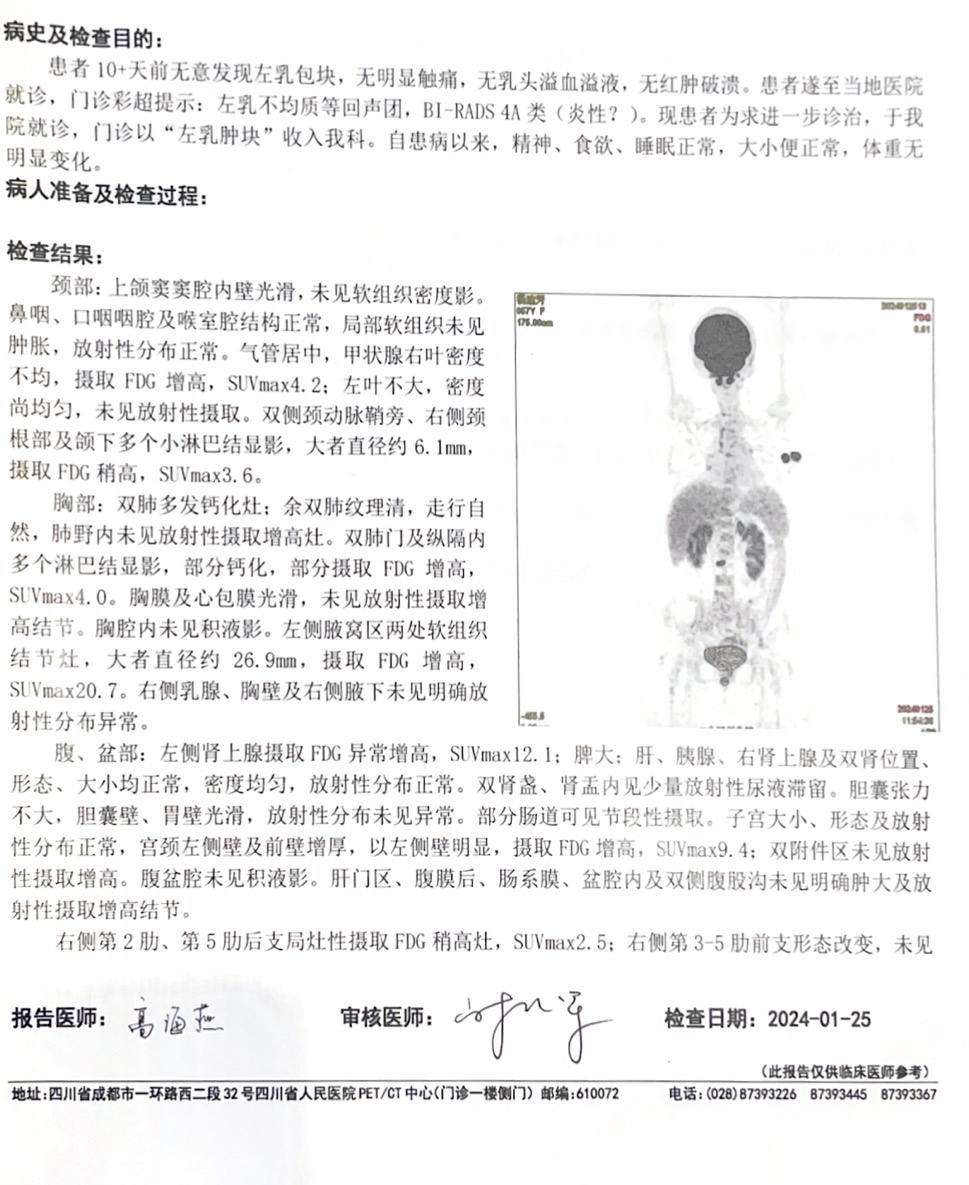 病史及检查目的：
患者 10+天前无意发现左乳包块，无明显触痛，无乳头溢血溢液，无红肿破溃。患者遂至当地医院
就诊，门诊彩超提示：左乳不均质等回声团，BI-RADS 4A 类（炎性？）。现患者为求进一步诊治，于我
院就诊，门诊以“左乳肿块”收入我科。自患病以来，精神、食欲、睡眠正常，大小便正常，体重无
明显变化。
病人准备及检查过程：
检查结果：
颈部：上颌窦窦腔内壁光滑，未见软组织密度影。
鼻咽、口咽咽腔及喉室腔结构正常，局部软组织未见
肿胀，放射性分布正常。气管居中，甲状腺右叶密度
不均，摄取 FDG 增高，SUVmax4.2；左叶不大，密度
尚均匀，未见放射性摄取。双侧颈动脉鞘旁、右侧颈
根部及颌下多个小淋巴结显影，大者直径约 6.1mm，
摄取 FDG 稍高，SUVmax3.6。
胸部：双肺多发钙化灶；余双肺纹理清，走行自
然，肺野内未见放射性摄取增高灶。双肺门及纵隔内
多个淋巴结显影，部分钙化，部分摄取 FDG 增高，
SUVmax4.0。胸膜及心包膜光滑，未见放射性摄取增
高结节。胸腔内未见积液影。左侧腋窝区两处软组织
结节灶，大者直径约 26.9mm，摄取 FDG 增高，
SUVmax20.7。右侧乳腺、胸壁及右侧腋下未见明确放
射性分布异常。
057Y F
175.00cm
FDG
0.61
20240125
11:54:36
腹、盆部：左侧肾上腺摄取 FDG 异常增高，SUVmax12.1；脾大；肝、胰腺、右肾上腺及双肾位置、
形态、大小均正常，密度均匀，放射性分布正常。双肾盏、肾盂内见少量放射性尿液滞留。胆囊张力
不大，胆囊壁、胃壁光滑，放射性分布未见异常。部分肠道可见节段性摄取。子宫大小、形态及放射
性分布正常，宫颈左侧壁及前壁增厚，以左侧壁明显，摄取 FDG 增高，SUVmax9.4；双附件区未见放射
性摄取增高。腹盆腔未见积液影。肝门区、腹膜后、肠系膜、盆腔内及双侧腹股沟未见明确肿大及放
射性摄取增高结节。
右侧第 2 肋、第 5 肋后支局灶性摄取 FDG 稍高灶，SUVmax2.5；右侧第 3-5 肋前支形态改变，未见
报告医师：高海燕 审核医师： 检查日期：2024-01-25
（此报告仅供临床医师参考）
地址：四川省成都市一环路西二段 32 号四川省人民医院 PET/CT 中心（门诊一楼侧门） 邮编：610072 电话：(028)87393226 87393445 87393367